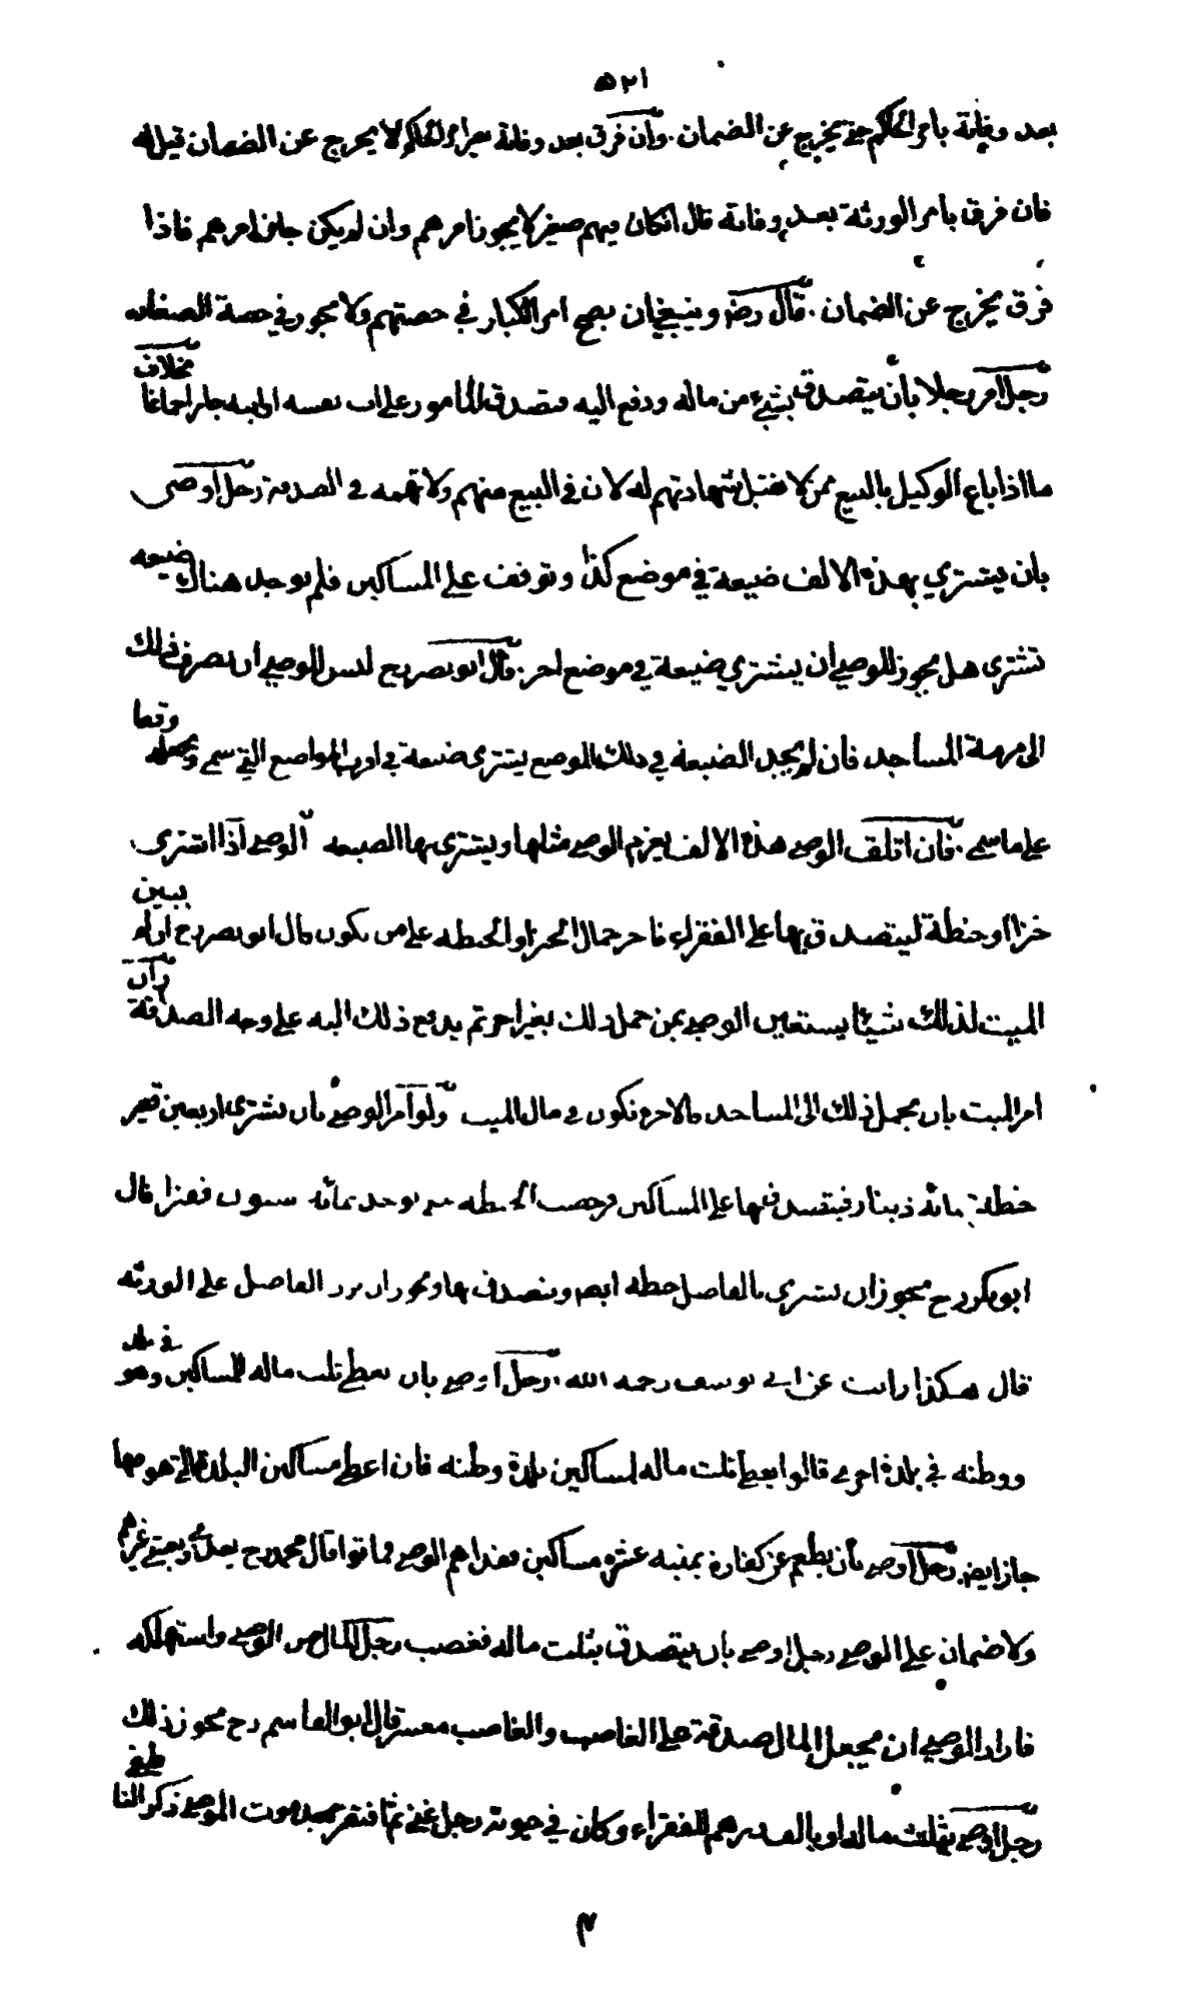 ٥٢١
بعد وفاته بامر الحاكم حتى يخرج عن الضمان . وان فرق بعد وفاته بغير امر الحاكم لا يخرج عن الضمان قيل له
فان فرق بامر الورثة بعد وفاته قال انكان فيهم صغير لا يجوز امرهم وان لم يكن جاز امرهم فاذا
فرق يخرج عن الضمان . قال رضه وينبغي ان يصح امر الكبار في حصتهم ولا يجوز في حصة الصغار
رجل امر رجلا بان يتصدق بشيء من ماله ودفع اليه فتصدق المامور على اب نفسه او ابنه جاز اجماعا بخلاف
ما اذا باع الوكيل بالبيع ممن لا تقبل شهادتهم له لان في البيع منهم ولا تهمة في الصدقة رجل اوصى
بان يشتري بهذه الالف ضيعة في موضع كذا وتوقف على المساكين فلم يوجد هناك ضيعه
تشترى هل يجوز للوصي ان يشتري ضيعة في موضع اخر . قال ابو نصر رح ليس للوصي ان يصرف ذلك
الى مرمة المساجد فان لم يجد الضيعة في ذلك الموضع يشترى ضيعة في اقرب المواضع التي سمى ويجعله وقفا
على ما سمى . فان اتلف الوصي هذه الالف يغرم الوصي مثلها ويشترى بها الضيعه الوصي اذا اشترى
خبزا او حنطة ليتصدق بها على الفقراء فاجر حمال الخبز او الحنطه على من يكون قال ابو نصر رح ان لم يبين
الميت لذلك شيئا يستعين الوصي بمن حمل ذلك بغير اجر ثم يدفع ذلك اليه على وجه الصدقة وان
امر الميت بان يحمل ذلك الى المساجد فالاجرة تكون في مال الميت ولو امر الوصي بان يشترى اربعين قفيز
حنطة بمائة دينار فيتصدق بها على المساكين فرخصت الحنطه حتى يوجد بمائة ستون قفيزا قال
ابو بكر رح يجوز ان يشتري بالفاضل حنطه ايضا ويتصدق بها ويجوز ان يرد الفاضل على الورثه
قال هكذا رايت عن ابي يوسف رحمه الله . رجل اوصى بان يعطى ثلث ماله للمساكين وهو في بلد
ووطنه في بلدة اخرى قالوا يعطى ثلث ماله لمساكين بلدة وطنه فان اعطى مساكين البلدة التي هو فيها
جاز ايضا . رجل اوصى بان يطعم عن كفارة يمينه عشرة مساكين فغداهم الوصي فماتوا قال محمد رح يغدي ويعشي غيرهم
ولا ضمان على الوصي رجل اوصى بان يتصدق بثلث ماله فغصب رجل المال من الوصي واستهلكه
فاراد الوصي ان يجعل المال صدقة على الغاصب والغاصب معسر قال ابو القاسم رح يجوز ذلك
رجل اوصى بثلث ماله او بالف درهم للفقراء وكان في حيوته رجل غني ثم افتقر بعد موت الموصي ذكر الناطفي
م